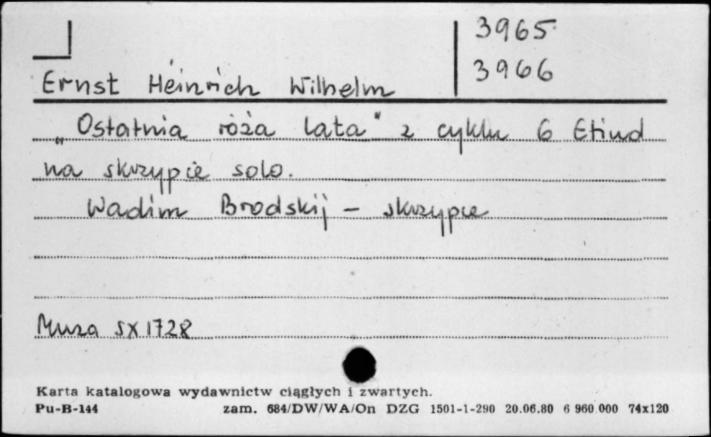 3965
3966
Ernst Heinrich Wilhelm
„Ostatnia róża lata" z cyklu 6 Etiud
na skrzypie solo.
Wadim Brodskij – skrzypce
Muza SX 1728
Karta katalogowa wydawnictw ciągłych i zwartych.
Pu-B-144 zam. 684/DW/WA/On DZG 1501-1-290 20.06.80 6 960 000 74x120